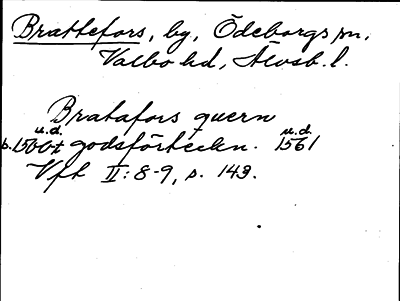 Brattefors, by, Ödeborgs sn,
Valbo hd, Älvsb. l.
Bratafors quern
u.d. u.d.
b. 1500t godsförteckn. 1561
Vfh II: 8-9, s. 143.